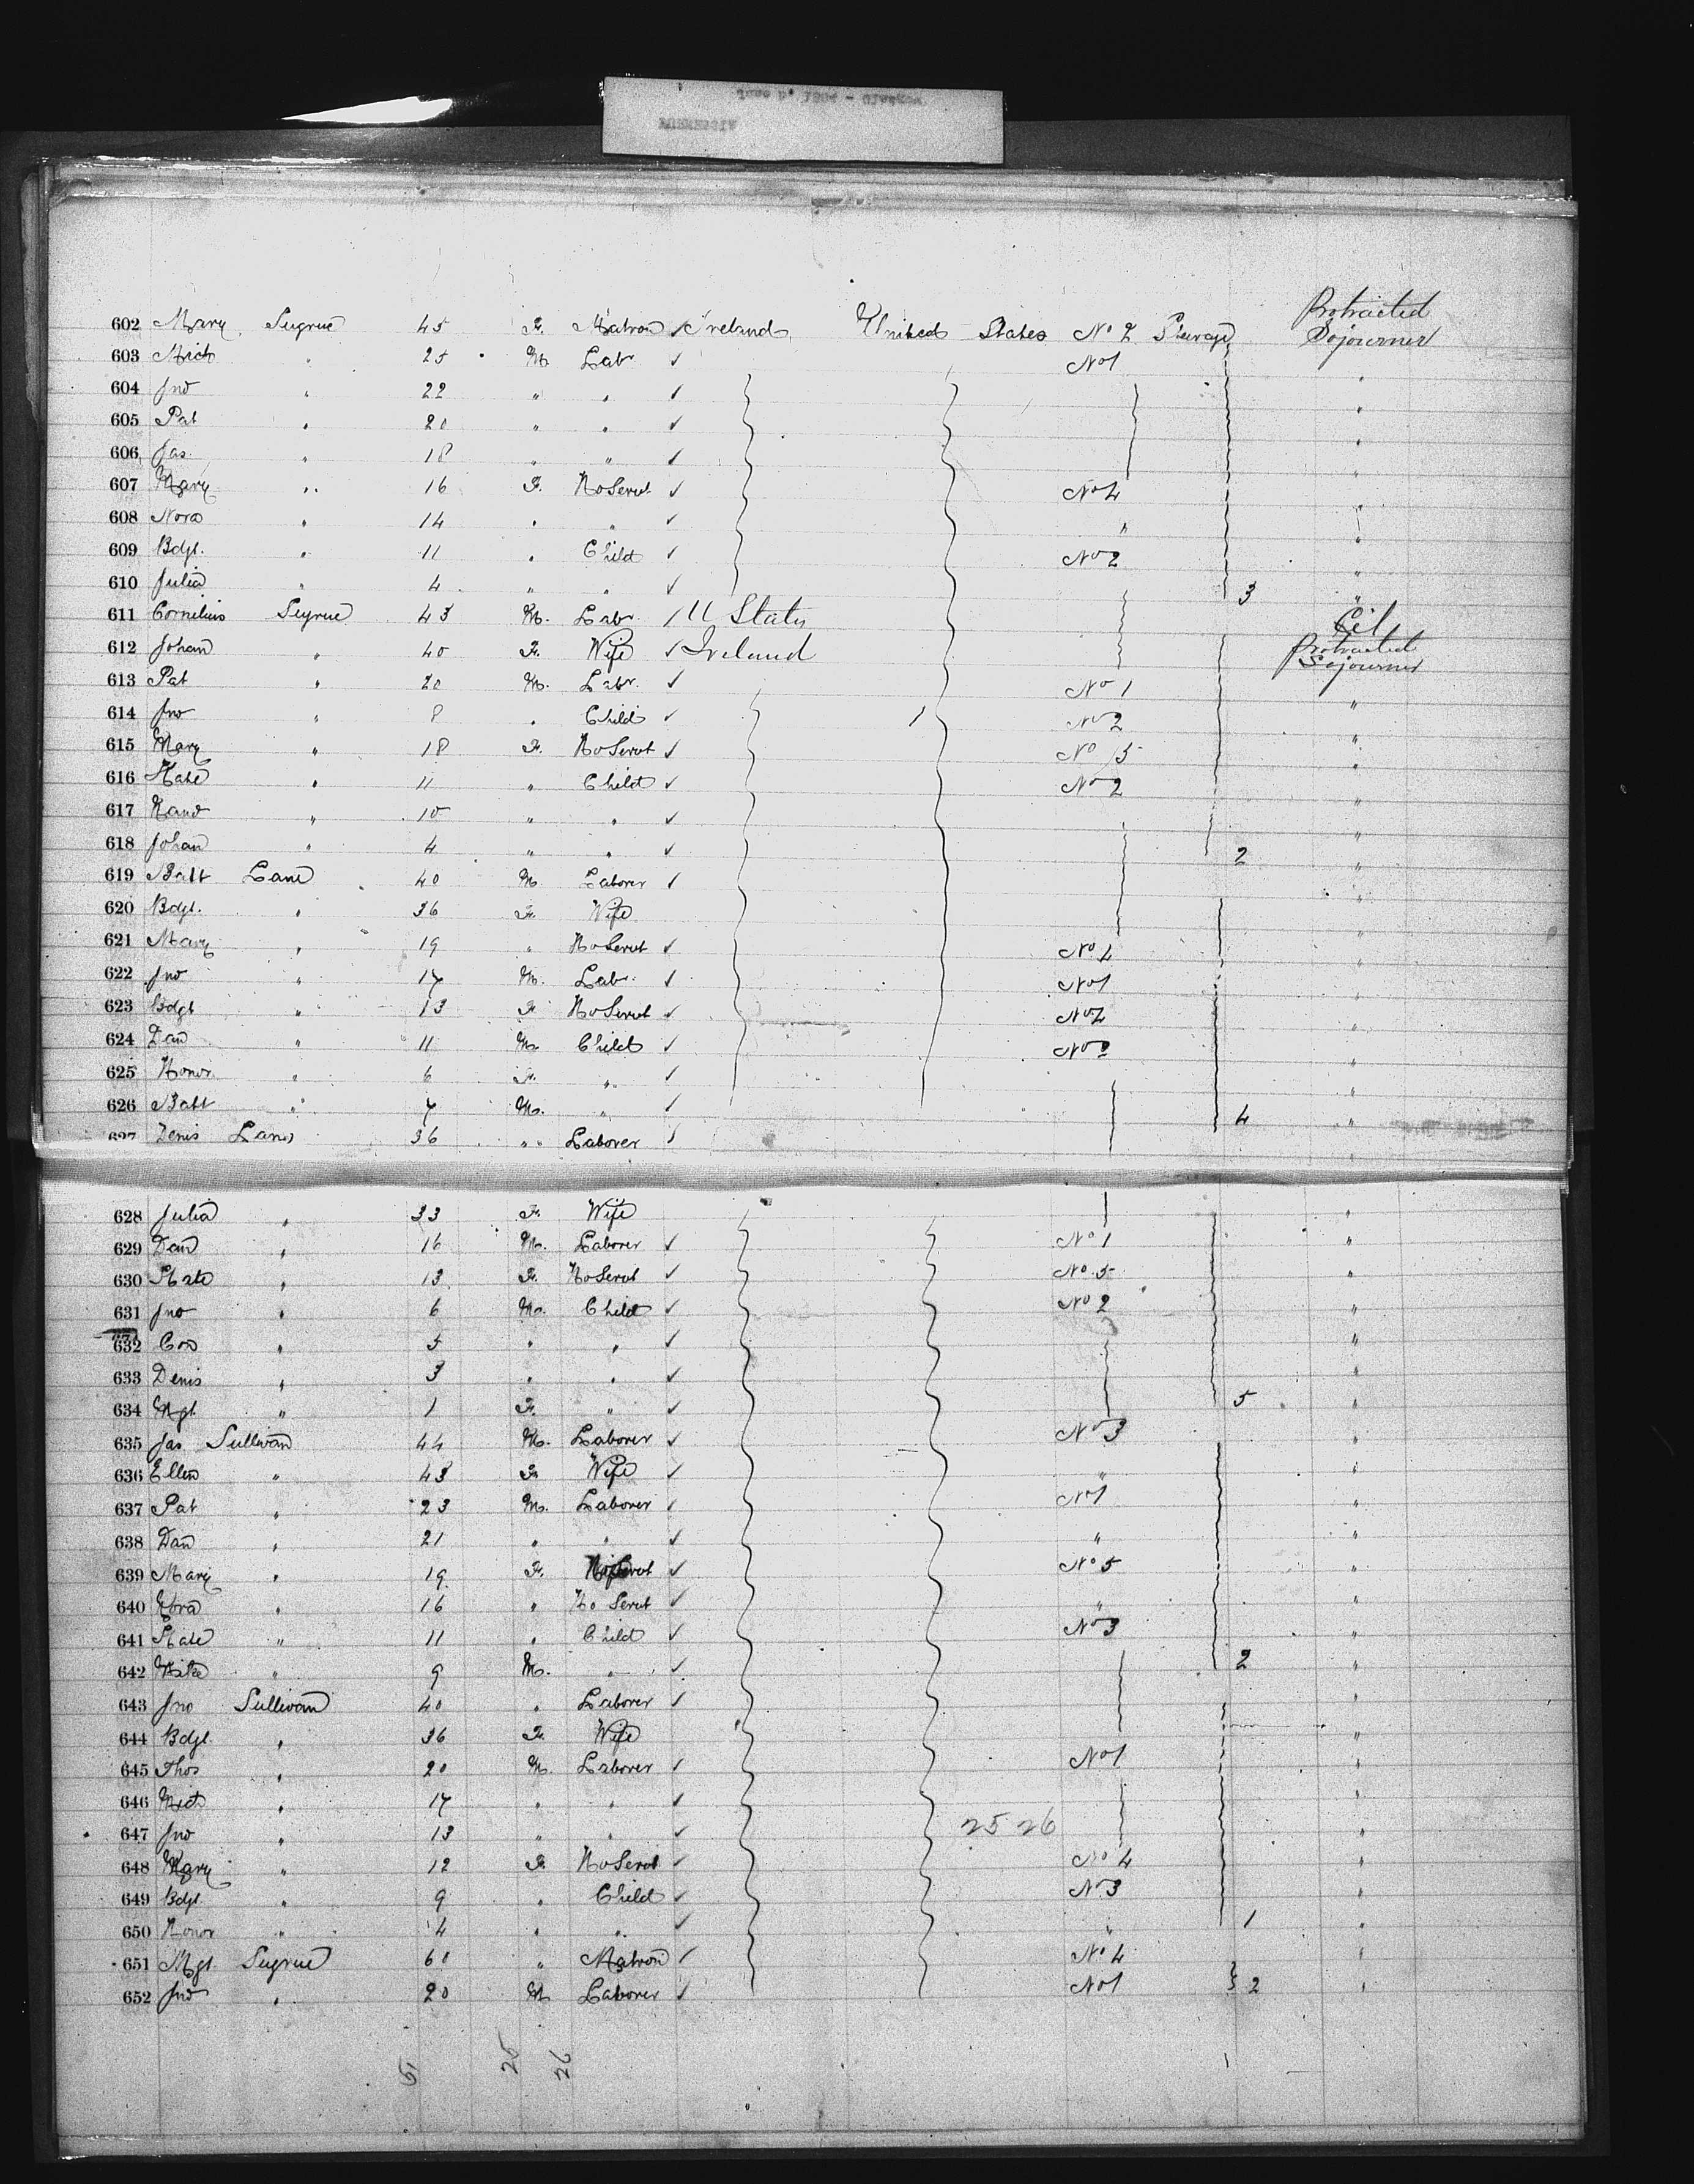 602 Mary Sugrue 45 F. Matron ✓ Ireland United States No 2 Steerage Protracted Sojourner
603 Mich " 25 M Labr ✓ No 1 "
604 Jno " 22 " " ✓ "
605 Pat " 20 " " ✓ "
606 Jas " 18 " " ✓ "
607 Mary " 16 F. Ho Servt ✓ No 4 "
608 Nora " 14 " " ✓ " "
609 Bdgt. " 11 " Child ✓ No 2 "
610 Julia " 4 " " ✓ 3 "
611 Cornelius Sugrue 43 M. Labr. ✓ U States Cit
612 Johan " 40 F. Wife ✓ Ireland Protracted Sojourner
613 Pat " 20 M. Labr. ✓ No 1 "
614 Jno " 8 " Child ✓ No 2 "
615 Mary " 18 F. Ho Servt ✓ No 5 "
616 Kate " 11 " Child ✓ No 2 "
617 " 10 " " ✓ "
618 Johan " 4 " " ✓ 2 "
619 Batt Lane 40 M Laborer ✓ "
620 Bdgt. " 36 F. Wife "
621 Mary " 19 " Ho Servt ✓ No 4 "
622 Jno " 17 M. Labr. ✓ No 1 "
623 Bdgt " 13 F Ho Servt ✓ No 4 "
624 Dan " 11 M Child ✓ No 2 "
625 Honor " 6 F. " ✓ "
626 Batt " 7 M. " ✓ 4 "
627 Denis Lane 36 " Laborer ✓ "
628 Julia " 33 F. Wife "
629 Dan " 16 M. Laborer ✓ No 1 "
630 Kate " 13 F. Ho Servt ✓ No 5 "
631 Jno " 6 M. Child ✓ No 2 "
632 Con " 5 " " ✓ "
633 Denis " 3 " " ✓ "
634 Mgt " 1 F. " ✓ 5 "
635 Jas Sullivan 44 M. Laborer ✓ No 3 "
636 Ellen " 43 F. Wife ✓ " "
637 Pat " 23 M. Laborer ✓ No 1 "
638 Dan " 21 " " ✓ " "
639 Mary " 19 F. Ho Servt ✓ No 5 "
640 Nora " 16 " Ho Servt ✓ " "
641 Kate " 11 " Child ✓ No 3 "
642 Mike " 9 M. " ✓ 2 "
643 Jno Sullivan 40 " Laborer ✓ "
644 Bdgt. " 36 F. Wife "
645 Thos " 20 M. Laborer ✓ No 1 "
646 Mich " 17 " " ✓ "
647 Jno " 13 " " ✓ 25 26 "
648 Mary " 12 F. Ho Servt ✓ No 4 "
649 Bdgt. " 9 " Child ✓ No 3 "
650 Honor " 4 " " ✓ " 1 "
651 Mgt Sugrue 60 " Matron ✓ No 4 "
652 Jno " 20 M Laborer ✓ No 1 2 "
51 25 26